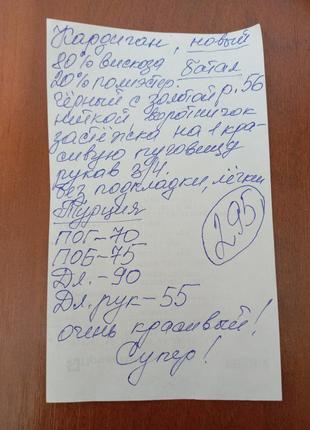 Кардиган, новый
80% вискоза батал
20% полиэстер.
Чёрный с золотой р.56
ниткой, воротничок
застёжка на 1 кра-
сивую пуговицу
рукав 3/4.
без подкладки, лёгкий
Турция
295
ПОГ-70
ПОБ-75
Дл.-90
Дл. рук-55
очень красивый!
Супер!